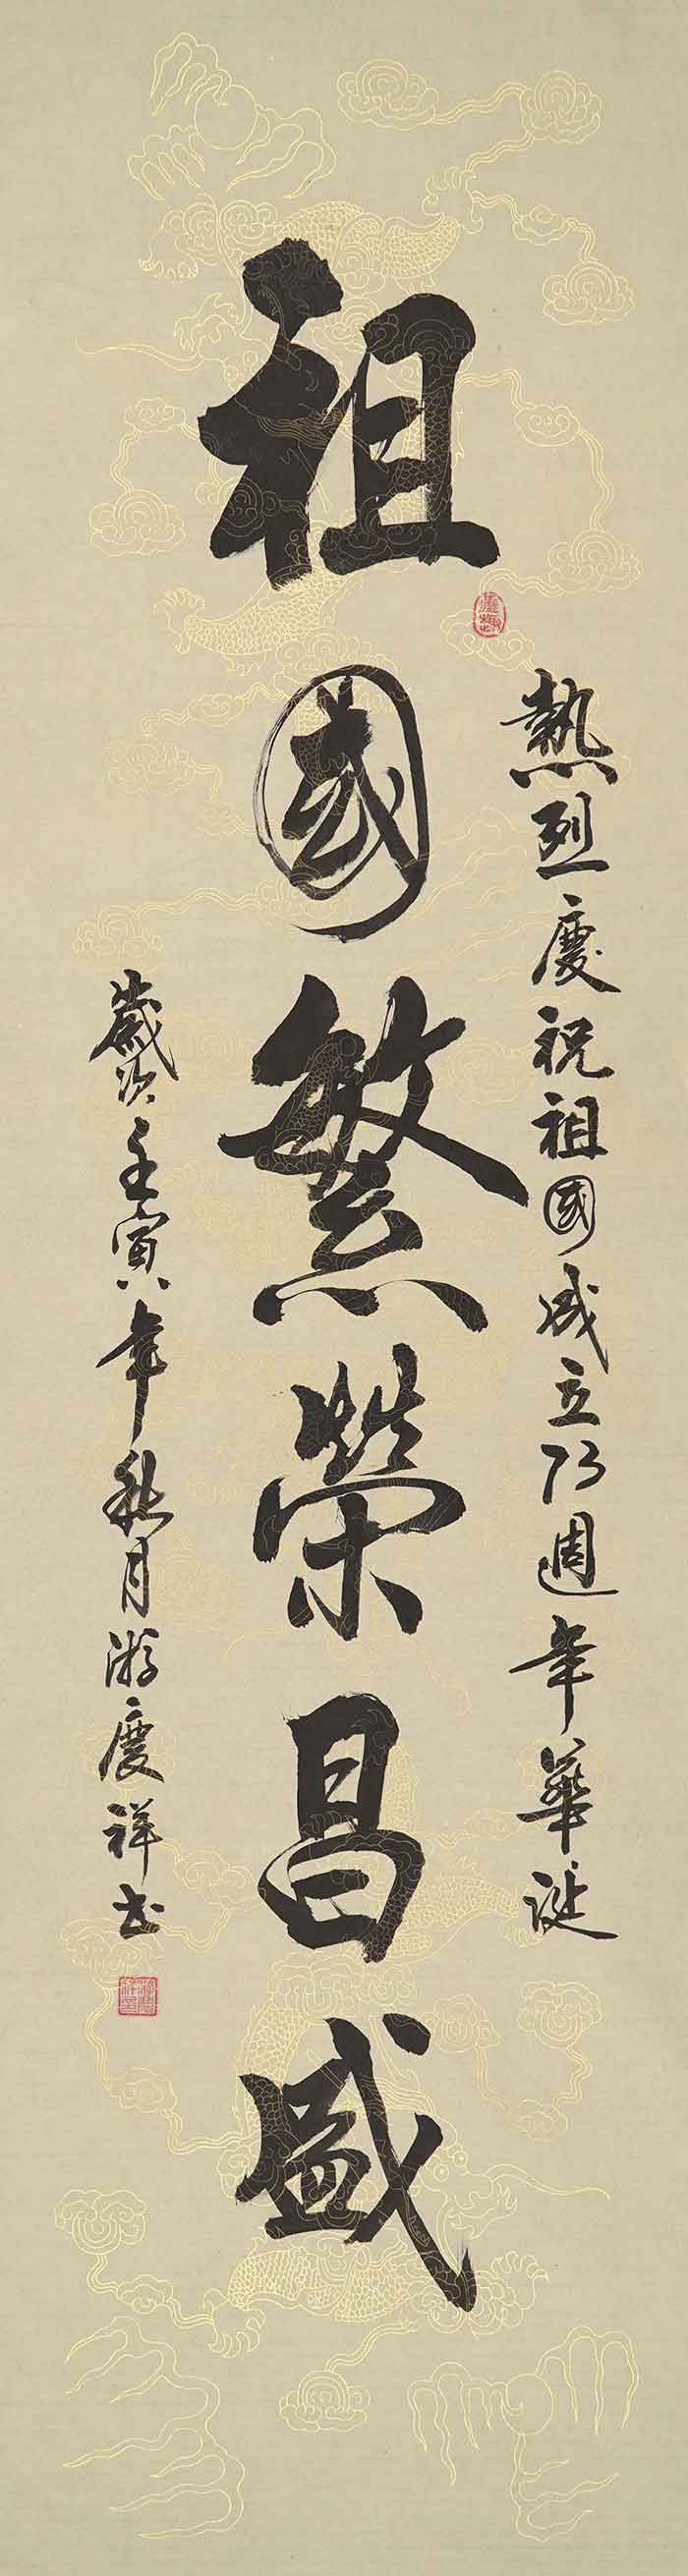 祖國繁榮昌盛
熱烈慶祝祖國成立73週年華誕
歲次壬寅年秋月游慶祥书